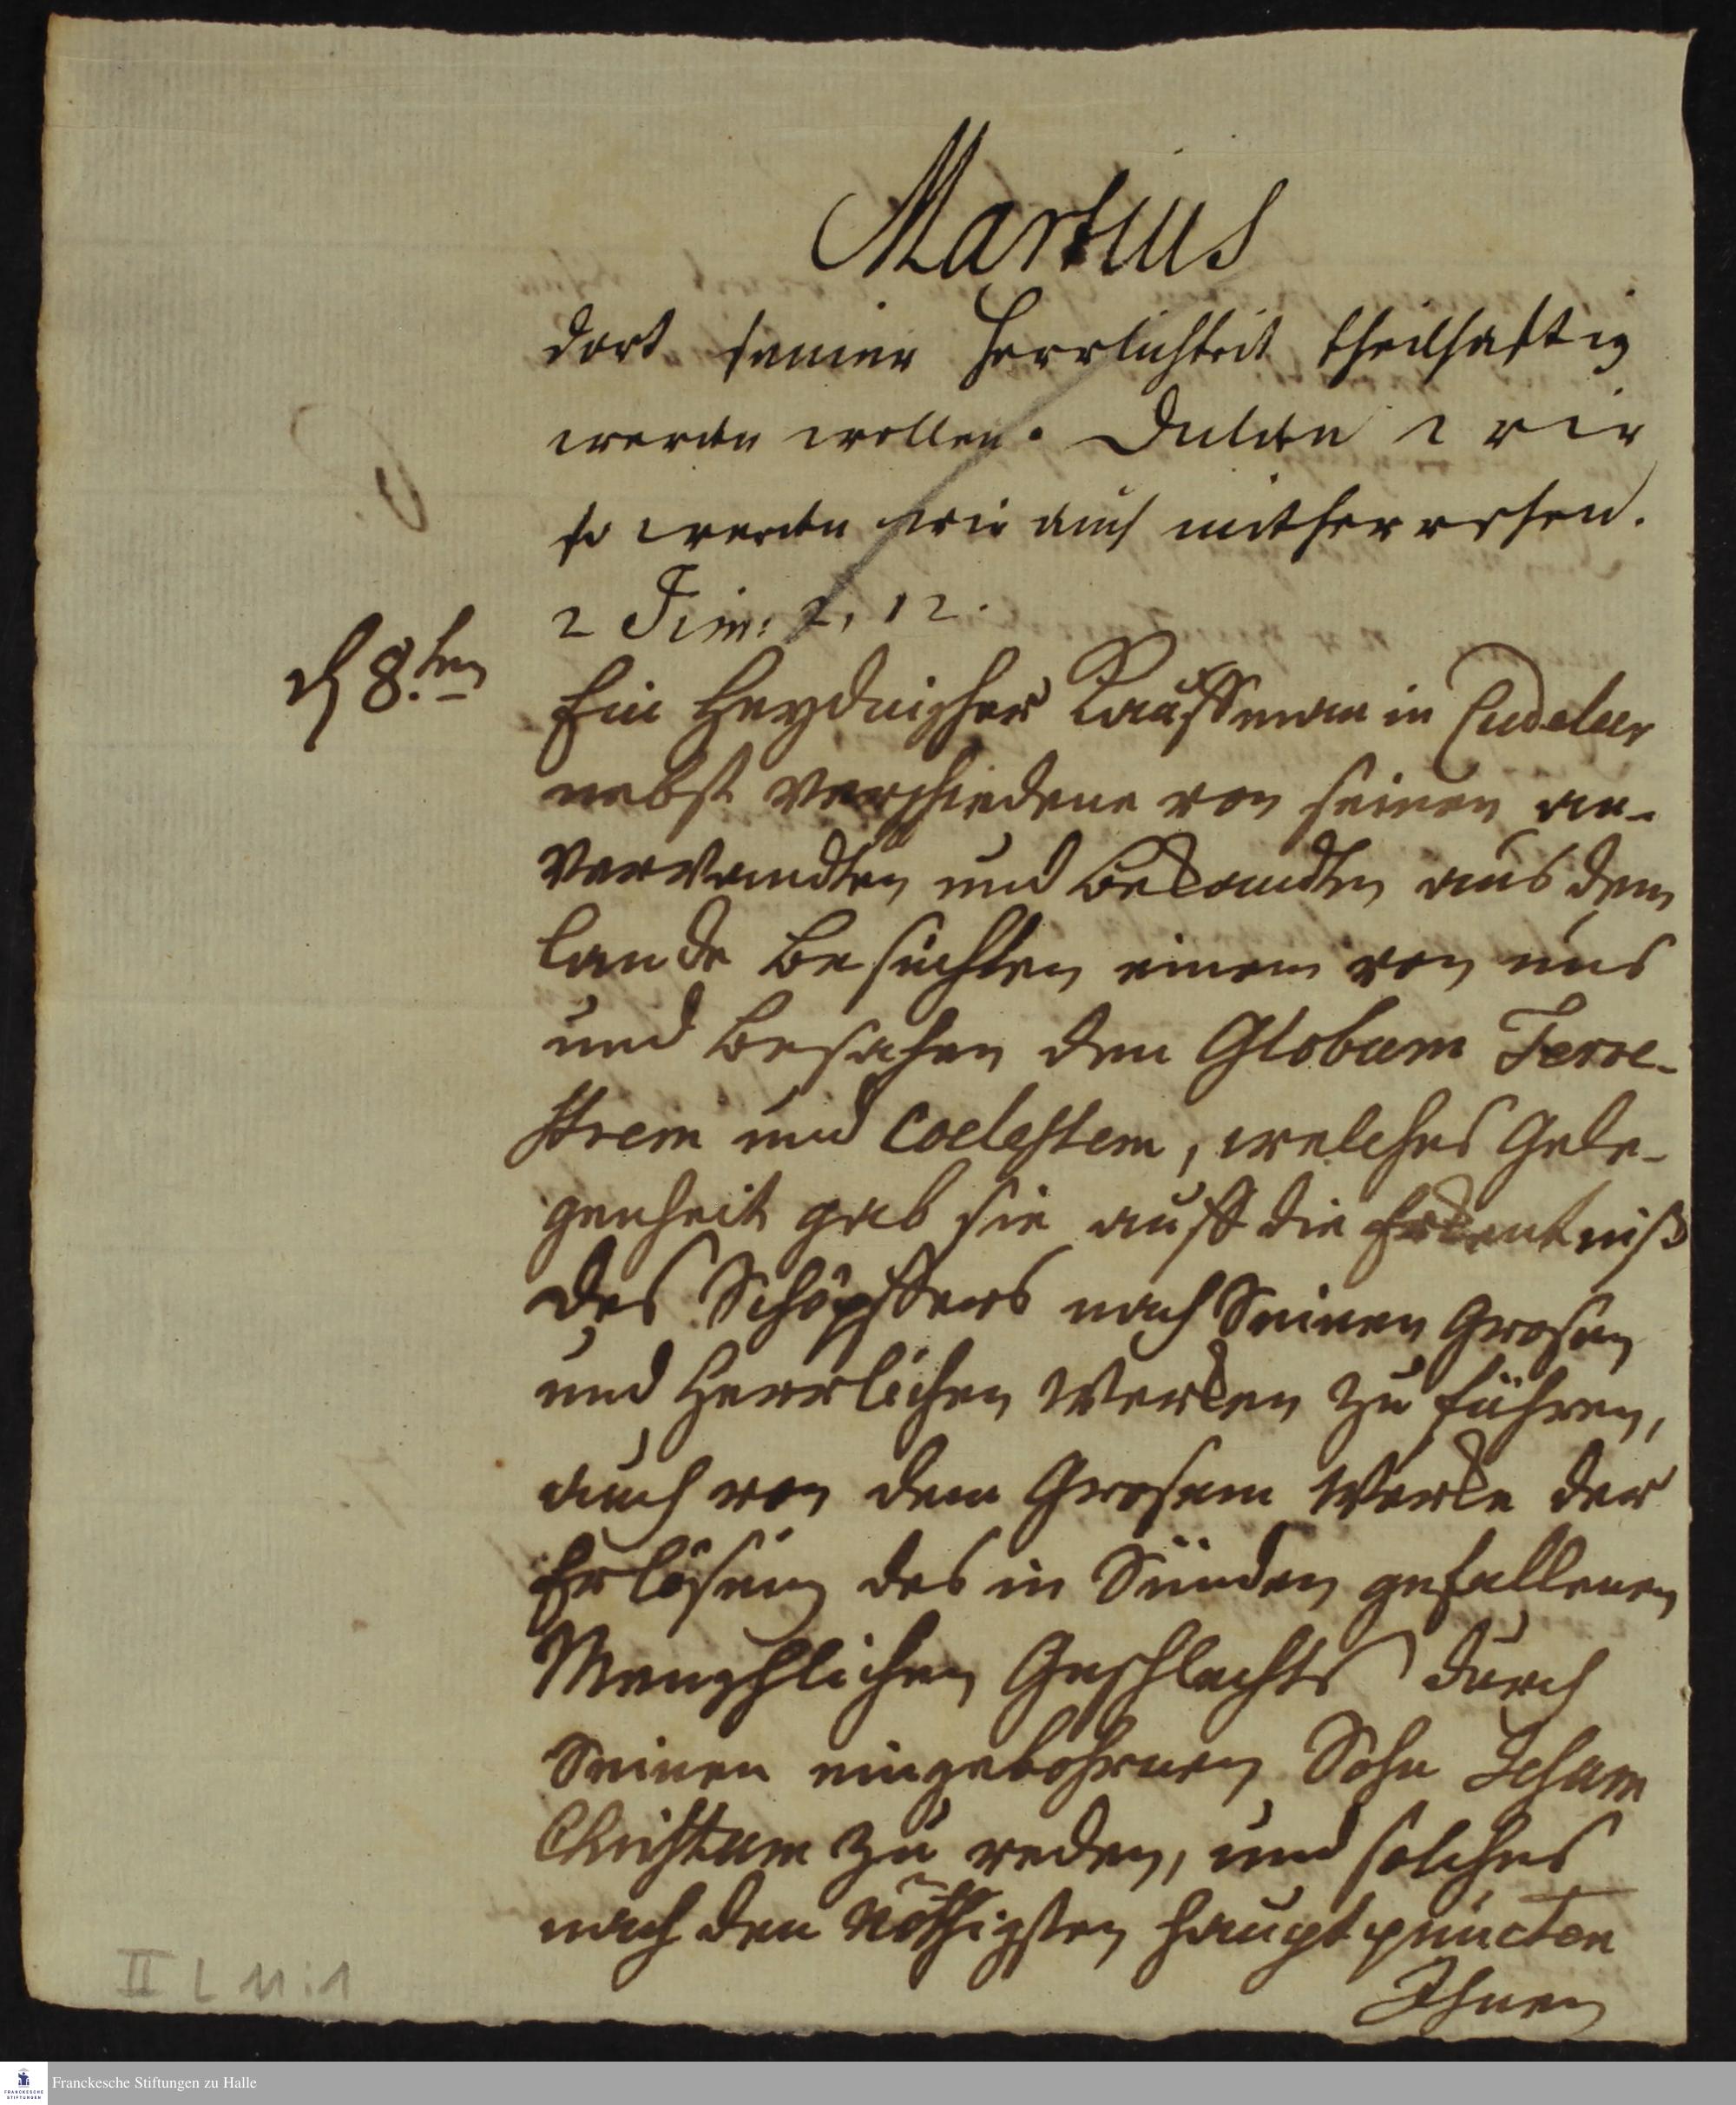 Martius
dort seiner Herrlichkeit theilhafftig
werden wollen. Dulden wir
so werden wir auch mitherrschen.
2 Tim: 2, 12.
d 8.ten
Ein Heydnischer Kauffman in Cudelur
nebst verschiedene von seinen an-
verwandten und Bekandten aus dem
Lande Besuchten einen von uns
und Besahen den Globum Terre-
strem und Coelestem, welches Gele-
genheit gab sie auff die Erkentniß
des Schöpffers nach Seinen Grosen
und Herrlichen Werken zu führen,
auch von dem Grosem Werke der
Erlösung des in Sünden gefallenen
Menschlichen Geschlechts durch
Seinen eingebohrnen Sohn Jesum
Christum zu reden, und solches
nach den Nöthigsten Hauptpuncten
Ihnen
II L 11:1
Franckesche Stiftungen zu Halle